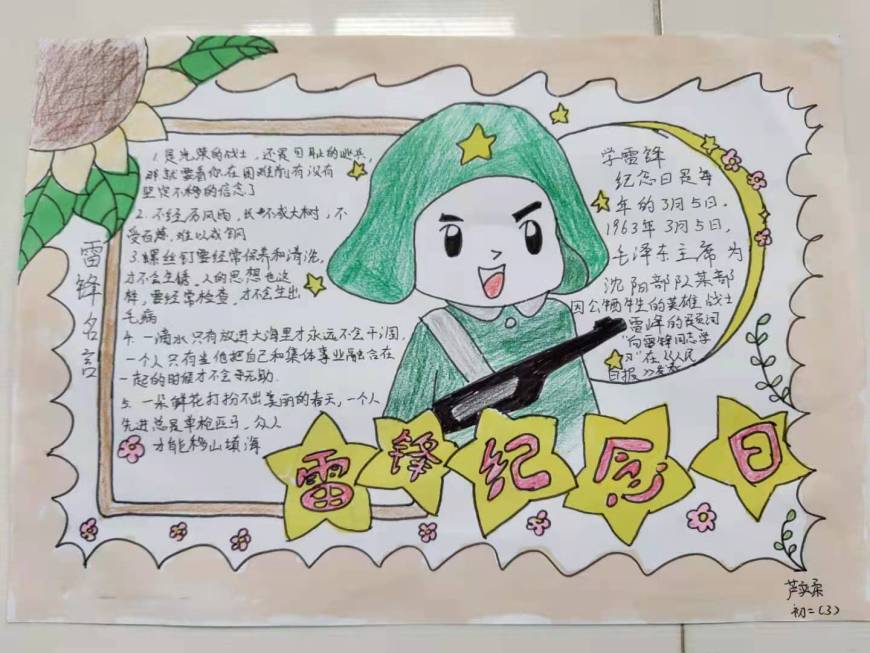 雷锋名言
1.是光荣的战士，还是可耻的逃兵，
那就要看你在困难面前有没有
坚定不移的信念了
2.不经历风雨，长不成大树，不
受百炼，难以成钢
3.螺丝钉要经常保养和清洗，
才不会生锈。人的思想也这
样，要经常检查，才不会生出
毛病
4.一滴水只有放进大海里才永远不会干涸，
一个人只有当他把自己和集体事业融合在
一起的时候才不会
5.一朵鲜花打扮不出美丽的春天，一个人
先进总是单枪匹马，众人
才能移山填海
学雷锋
纪念日是每
年的3月5日．
1963年3月5日，
毛泽东主席为
沈阳部队某部
因公牺牲的英雄战士
雷峰的题词
“向雷锋同志学
习”在《人民
日报》发表
雷锋纪念日
芦奕柔
初二（3）